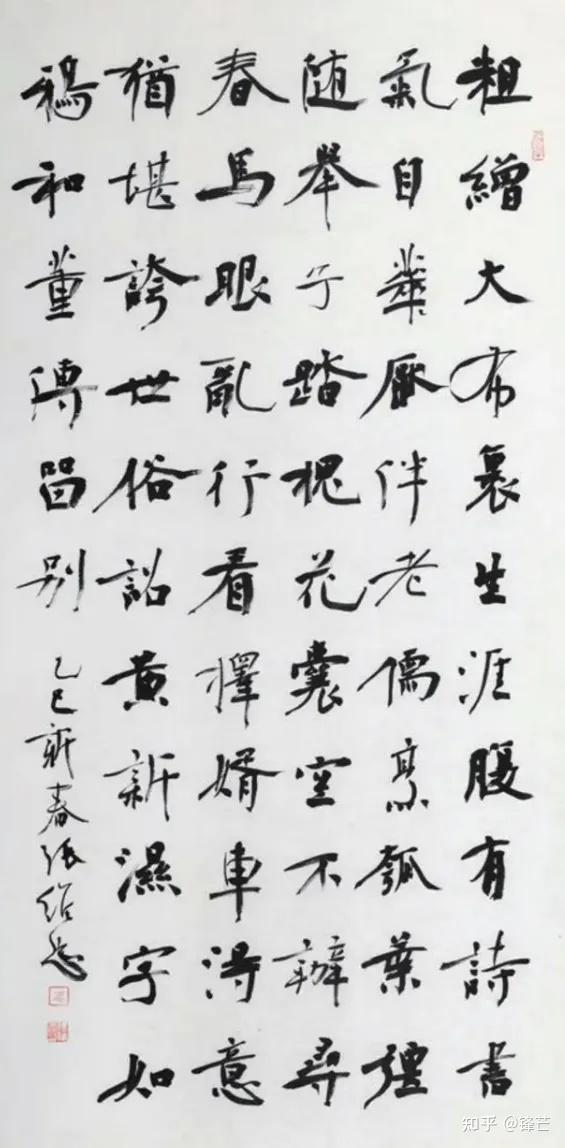 粗繒大布裹生涯腹有詩書
氣自華厭伴老儒烹瓠葉彊
随舉子踏槐花囊空不辦尋
春馬眼亂行看擇婿車得意
猶堪誇世俗詔黄新濕字如
鴉和董傳留别
乙巳新春張紹
知乎 @锋芒